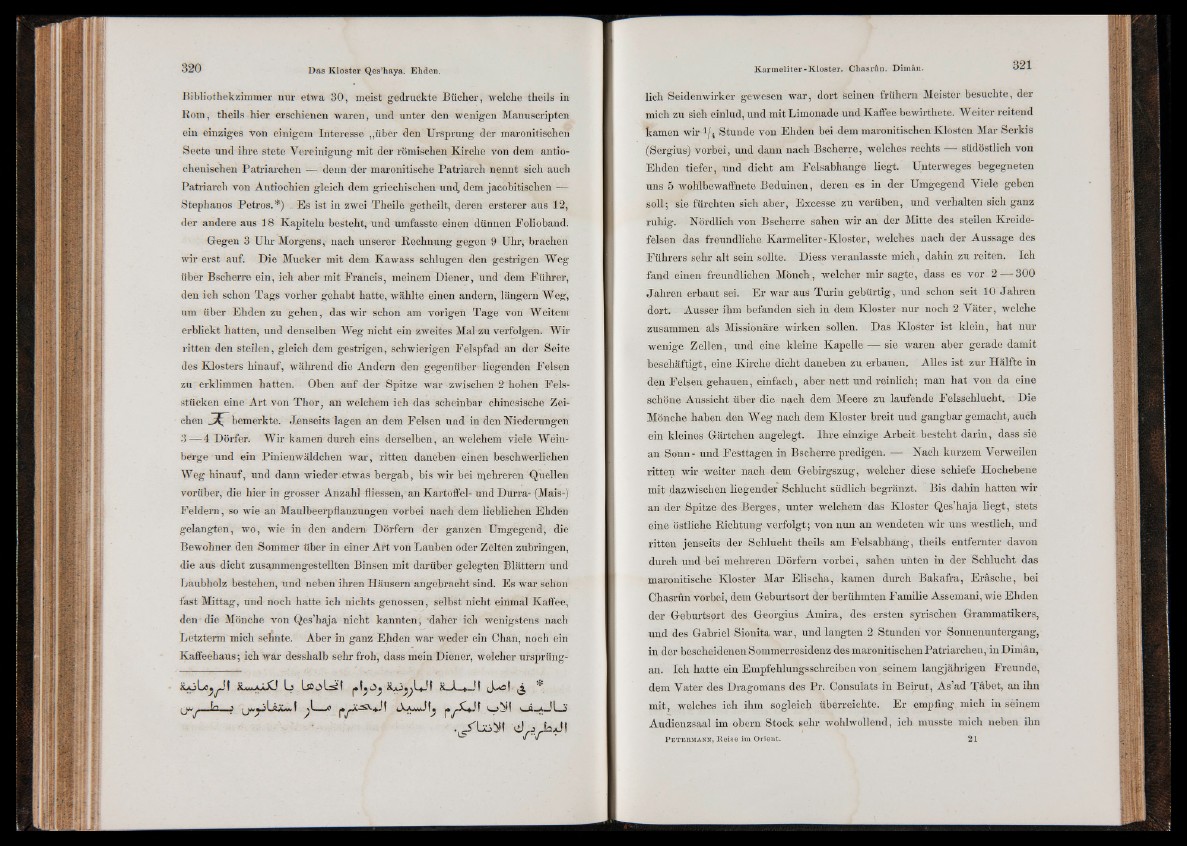 320
Das Kloster Qes'haya. Ehden.
Bibliothekzimmer nur etwa 30, meist gedruckte Bücher, welche theils in
Rom, theils hier erschienen waren, und unter den wenigen Manuscripten
ein einziges von einigem Interesse „über den Ursprung der maronitischen
Secte und ihre stete Vereinigung mit der römischen Kirche von dem antio-
chenischen Patriarchen — denn der maronitische Patriarch nennt sich auch
Patriarch von Antiochien gleich dem griechischen und dem jacobitischen —
Stephanos Petros.*) Es ist in zwei Theile getheilt, deren ersterer aus 12,
der andere aus 18 Kapiteln besteht, und umfasste einen dünnen Folioband.
Gegen 3 Uhr Morgens, nach unserer Rechnung gegen 9 Uhr, brachen
wir erst auf. Die Mucker mit dem Kawass schlugen den gestrigen Weg
über Bscherre ein, ich aber mit Francis, meinem Diener, und dem Führer,
den ich schon Tags vorher gehabt hatte, wählte einen andern, längern Weg,
um über Ehden zu gehen, das wir schon am vorigen Tage von Weitem
erblickt hatten, und denselben Weg nicht ein zweites Mal zu verfolgen. Wir
ritten den steilen, gleich dem gestrigen, schwierigen Felspfad an der Seite
des Klosters hinauf, während die Andern den gegenüber liegenden Felsen
zu erklimmen hatten. Oben auf der Spitze war zwischen 2 hohen Fels-
stücken eine Art von Thor, an welchem ich das scheinbar chinesische Zei-
chen bemerkte. Jenseits lagen an dem Felsen und in den Niederungen
3—4 Dörfer. Wir kamen durch eins derselben, an welchem viele Wein-
berge und ein Pinienwäldchen war, ritten daneben einen beschwerlichen
Weg hinauf, und dann wieder etwas bergab, bis wir bei mehreren Quellen
vorüber, die hier in grosser Anzahl fliessen, an Kartoffel- und Durra- (Mais-)
Feldern, so wie an Maulbeerpflanzungen vorbei nach dem lieblichen Ehden
gelangten, wo, wie in den andern Dörfern der ganzen Umgegend, die
Bewohner den Sommer über in einer Art von Lauben oder Zelten zubringen,
die aus dicht zusammengestellten Binsen mit darüber gelegten Blättern und
Laubholz bestehen, und neben ihren Häusern angebracht sind. Es war schon
fast Mittag, und noch hatte ich nichts genossen, selbst nicht einmal Kaffee,
den die Mönche von Qes'haja nicht kannten, daher ich wenigstens nach
Letzterm mich sehnte. Aber in ganz Ehden war weder ein Chan, noch ein
Kaffeehaus; ich war desshalb sehr froh, dass mein Diener, welcher ursprüng-
* في اصل الملة المارونية ودوام اتحادها با لكنيسة الرومانية
تاليف الاب المكرم والسيد المحترم مار استفانوس بطرس
البطريرك الانتاكى.
Karmeliter-Kloster. Chasrûn. Dimân.
321
lich Seidenwirker gewesen war, dort seinen frühern Meister besuchte, der
mich zu sich einlud, und mit Limonade und Kaffee bewirthete. Weiter reitend
kamen wir ¼ Stunde von Ehden bei dem maronitischen Kloster Mar Serkis
(Sergius) vorbei, und dann nach Bscherre, welches rechts — südöstlich von
Ehden tiefer, und dicht am Felsabhange liegt. Unterweges begegneten
uns 5 wohlbewaffnete Beduinen, deren es in der Umgegend Viele geben
soll; sie fürchten sich aber, Excesse zu verüben, und verhalten sich ganz
ruhig. Nördlich von Bscherre sahen wir an der Mitte des steilen Kreide-
felsen das freundliche Karmeliter-Kloster, welches nach der Aussage des
Führers sehr alt sein sollte. Diess veranlasste mich, dahin zu reiten. Ich
fand einen freundlichen Mönch, welcher mir sagte, dass es vor 2—300
Jahren erbaut sei. Er war aus Turin gebürtig, und schon seit 10 Jahren
dort. Ausser ihm befanden sich in dem Kloster nur noch 2 Väter, welche
zusammen als Missionäre wirken sollen. Das Kloster ist klein, hat nur
wenige Zellen, und eine kleine Kapelle — sie waren aber gerade damit
beschäftigt, eine Kirche dicht daneben zu erbauen. Alles ist zur Hälfte in
den Felsen gehauen, einfach, aber nett und reinlich; man hat von da eine
schöne Aussicht über die nach dem Meere zu laufende Felsschlucht. Die
Mönche haben den Weg nach dem Kloster breit und gangbar gemacht, auch
ein kleines Gärtchen angelegt. Ihre einzige Arbeit besteht darin, dass sie
an Sonn- und Festtagen in Bscherre predigen. — Nach kurzem Verweilen
ritten wir weiter nach dem Gebirgszug, welcher diese schiefe Hochebene
mit dazwischen liegender Schlucht südlich begränzt. Bis dahin hatten wir
an der Spitze des Berges, unter welchem das Kloster Qes'haja liegt, stets
eine östliche Richtung verfolgt; von nun an wendeten wir uns westlich, und
ritten jenseits der Schlucht theils am Felsabhang, theils entfernter davon
durch und bei mehreren Dörfern vorbei, sahen unten in der Schlucht das
maronitische Kloster Mar Elischa, kamen durch Bakafra, Erâsche, bei
Chasrûn vorbei, dem Geburtsort der berühmten Familie Assemani, wie Ehden
der Geburtsort des Georgius Amira, des ersten syrischen Grammatikers,
und des Gabriel Sionita war, und langten 2 Stunden vor Sonnenuntergang,
in der bescheidenen Sommerresidenz des maronitischen Patriarchen, in Dimân,
an. Ich hatte ein Empfehlungsschreiben von seinem langjährigen Freunde,
dem Vater des Dragomans des Pr. Consulats in Beirut, As'ad Ṭâbet, an ihn
mit, welches ich ihm sogleich überreichte. Er empfing mich in seinem
Audienzsaal im obern Stock sehr wohlwollend, ich musste mich neben ihn
PETERMANN, Reise im Orient.
21